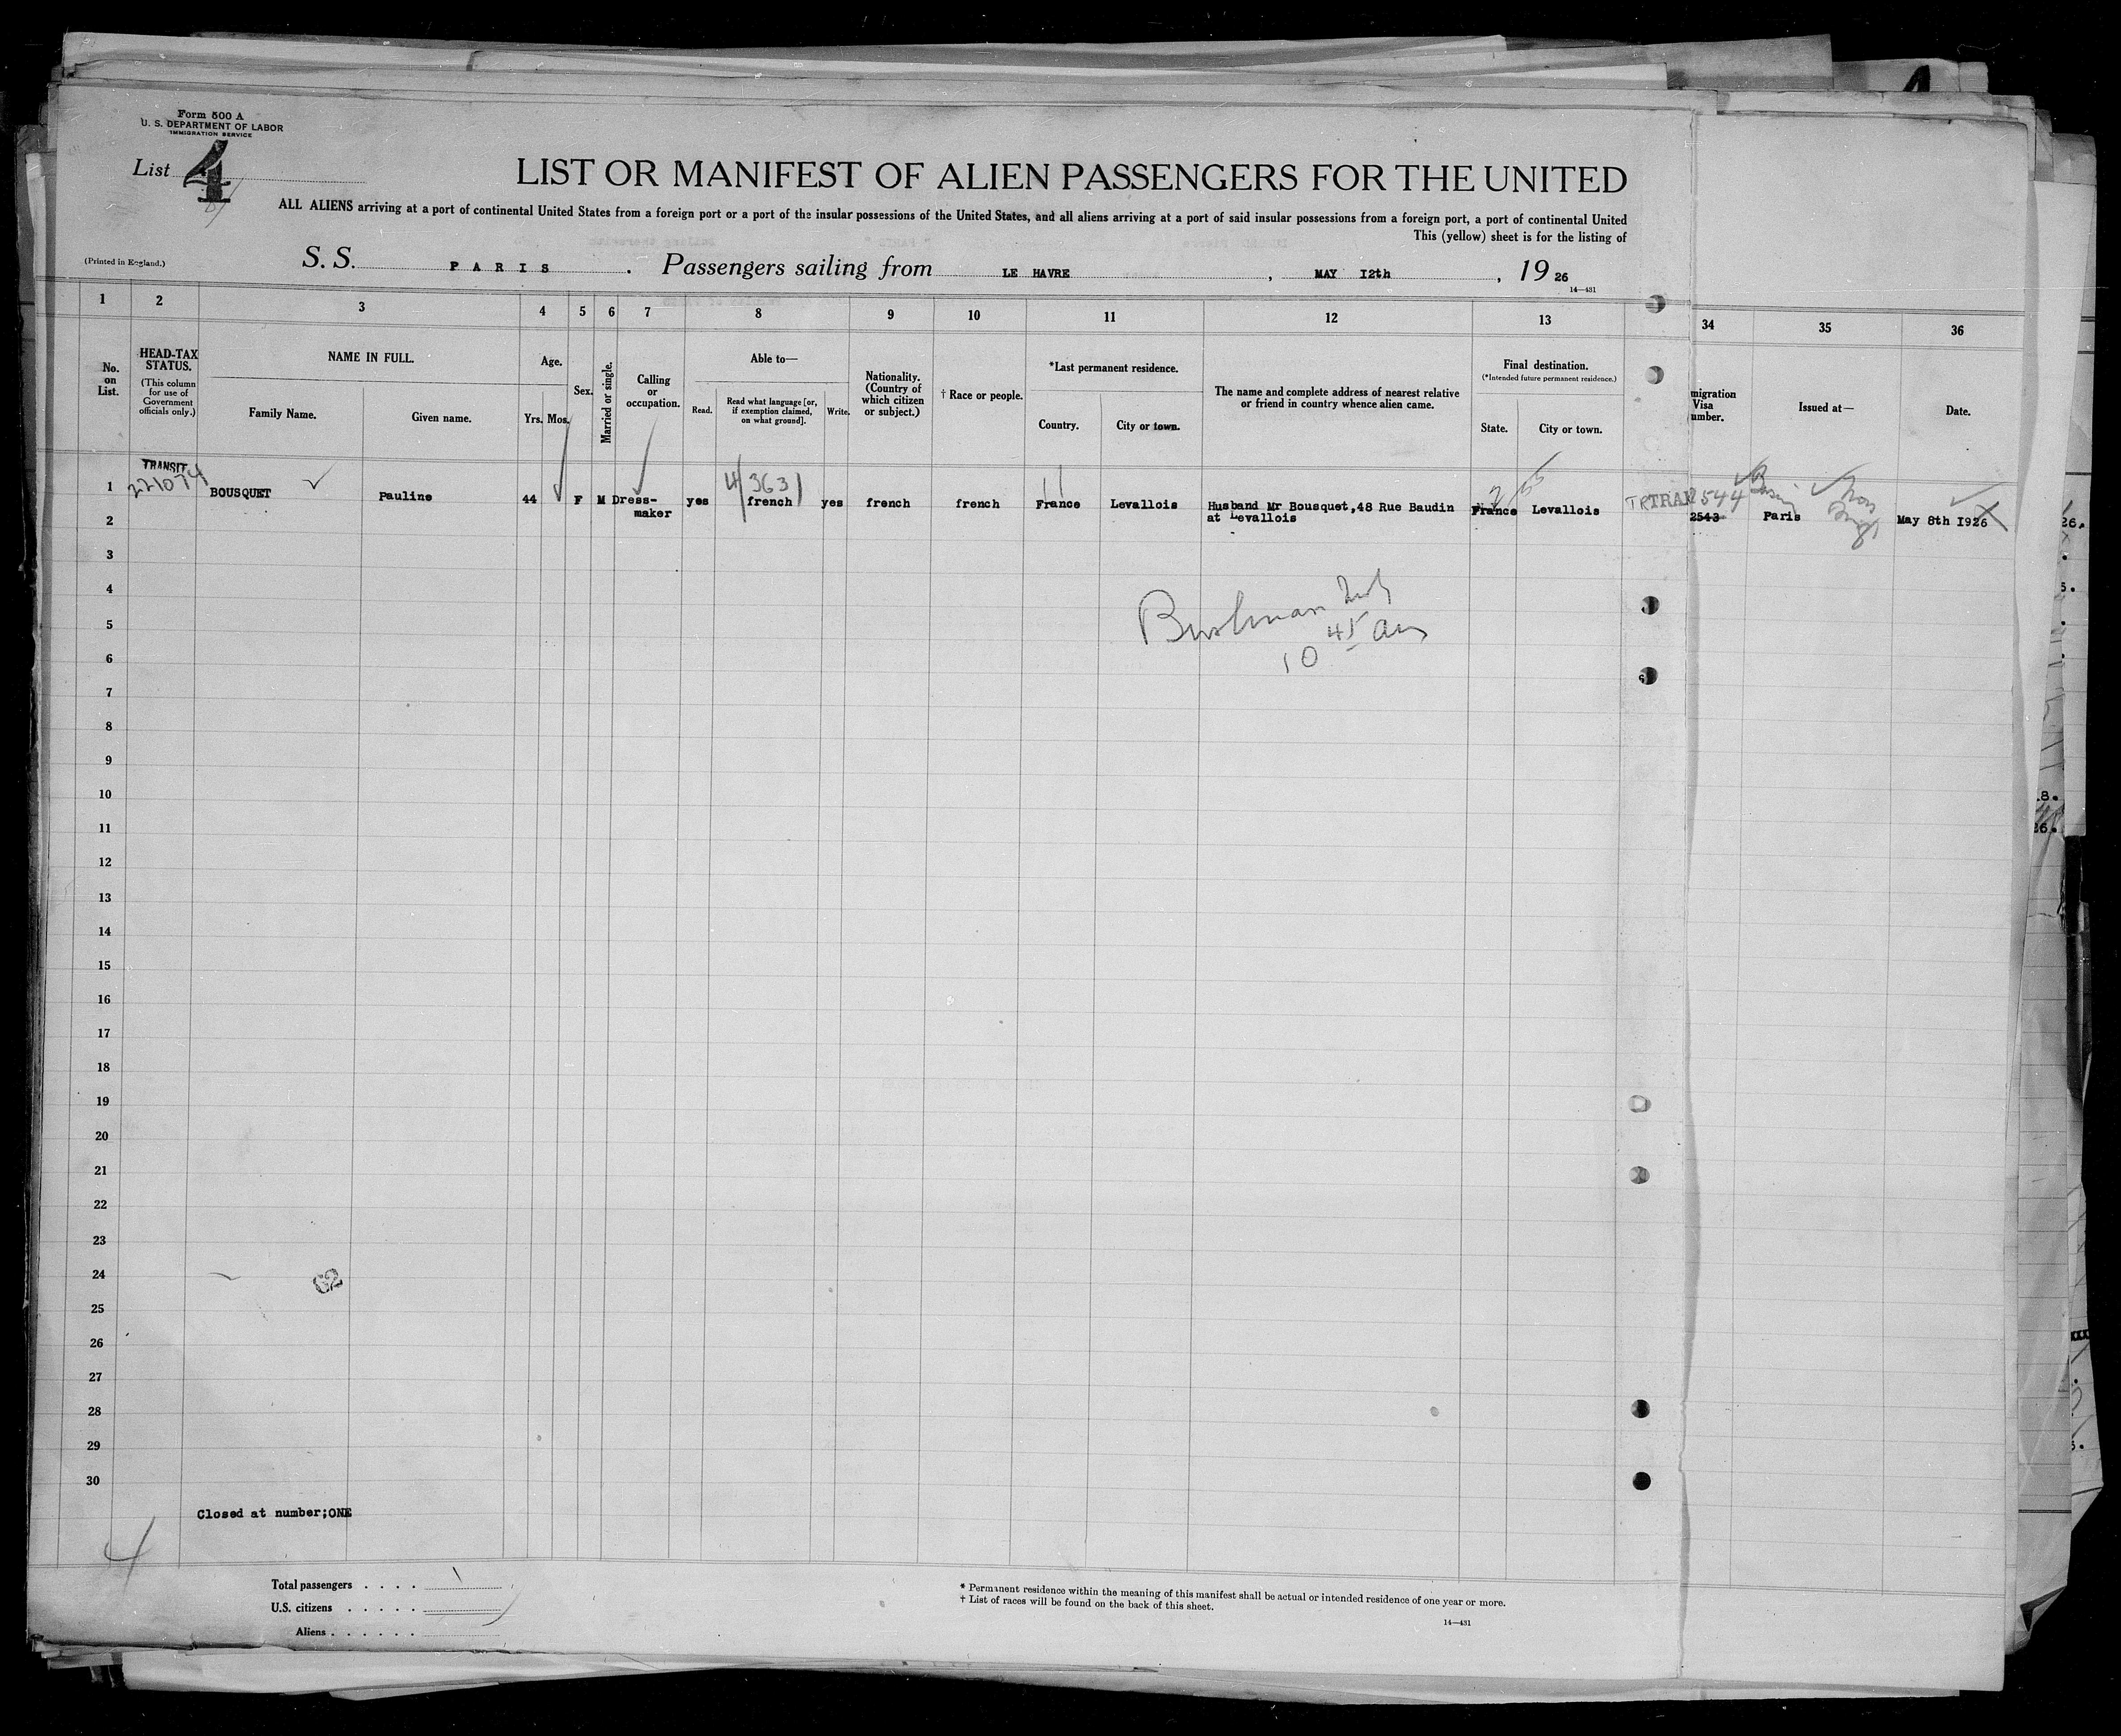 Form 500 A
U. S. DEPARTMENT OF LABOR
IMMIGRATION SERVICE
List 4
LIST OR MANIFEST OF ALIEN PASSENGERS FOR THE UNITED
ALL ALIENS arriving at a port of continental United States from a foreign port or a port of the insular possessions of the United States, and all aliens arriving at a port of said insular possessions from a foreign port, a port of continental United
This (yellow) sheet is for the listing of
(Printed in England.)
S. S. PARIS . Passengers sailing from LE HAVRE , MAY 12th , 19 26
14—431
1 2 3 4 5 6 7 8 9 10 11 12 13 34 35 36
No. on List.
HEAD-TAX STATUS.
(This column for use of Government officials only.)
NAME IN FULL.
Family Name.
Given name.
Age.
Yrs. Mos.
Sex.
Married or single.
Calling or occupation.
Able to—
Read.
Read what language [or, if exemption claimed, on what ground].
Write.
Nationality. (Country of which citizen or subject.)
† Race or people.
*Last permanent residence.
Country.
City or town.
The name and complete address of nearest relative or friend in country whence alien came.
Final destination.
(*Intended future permanent residence.)
State.
City or town.
migration Visa umber.
Issued at—
Date.
TRANSIT
1 BOUSQUET Pauline 44 F M Dress-maker yes french yes french french France Levallois Husband Mr Bousquet,48 Rue Baudin at Levallois France Levallois TRAN 2544 2543 Paris May 8th 1926
2
3
4
5
6
7
8
9
10
11
12
13
14
15
16
17
18
19
20
21
22
23
24
25
26
27
28
29
30
45
10
Closed at number;ONE
4
Total passengers . . . .
U.S. citizens . . . . .
Aliens . . . . . .
* Permanent residence within the meaning of this manifest shall be actual or intended residence of one year or more.
† List of races will be found on the back of this sheet.
14—431